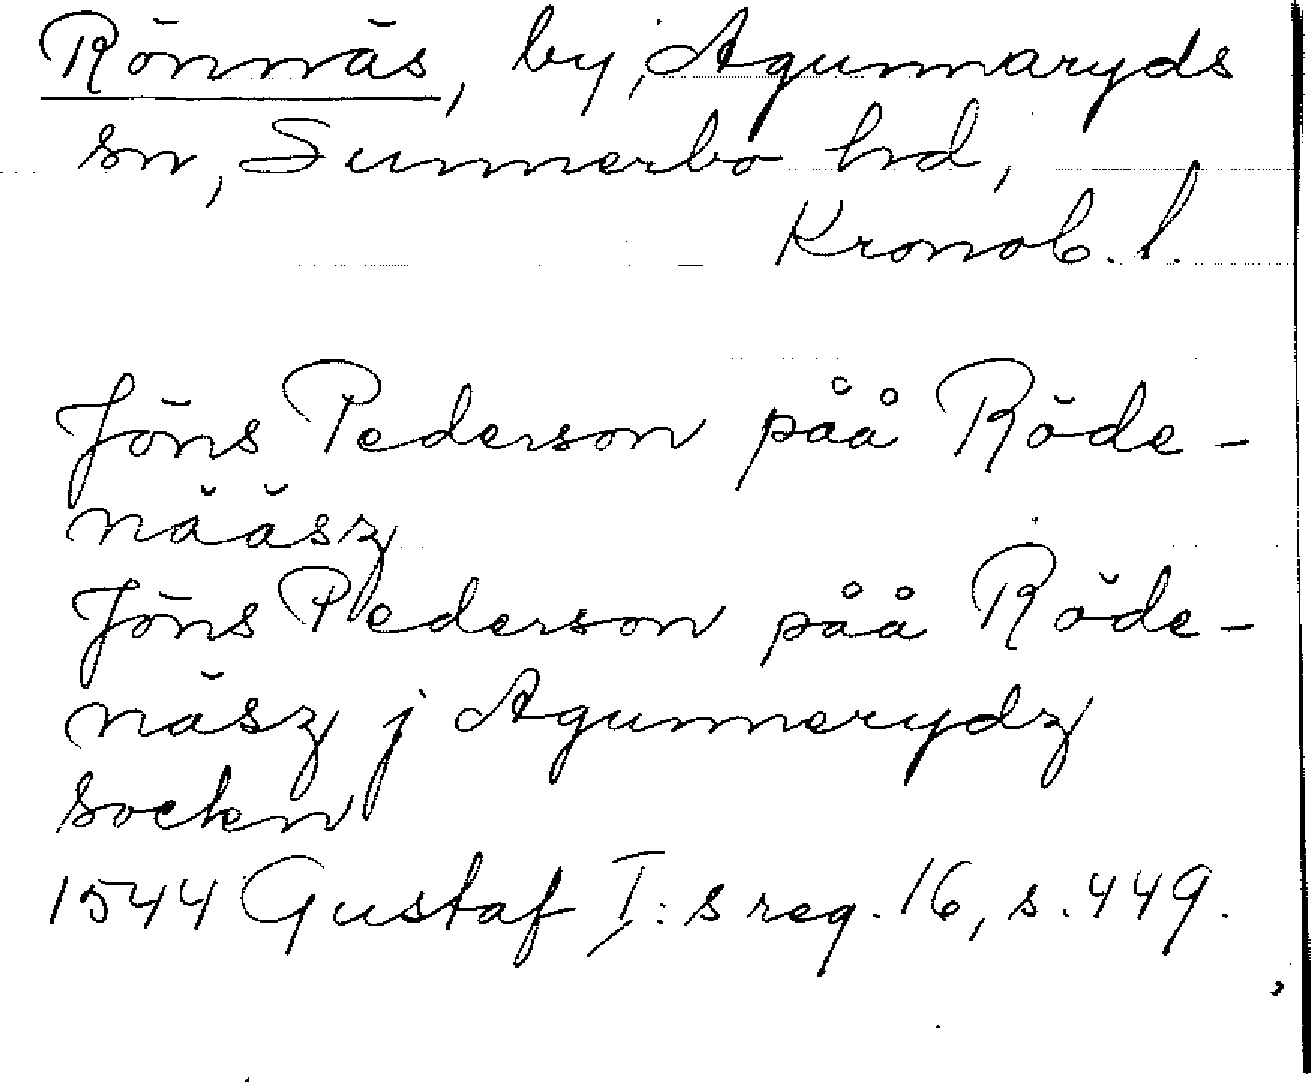 Rönnäs, by, Agunnaryds
sn, Sunnerbo hd,
Kronob. l.
Jöns Pederson påå Röde-
nääsz
Jöns Pederson påå Röde-
näsz j Agunnerydz
socken
1544 Gustaf I:s reg. 16, s. 449.